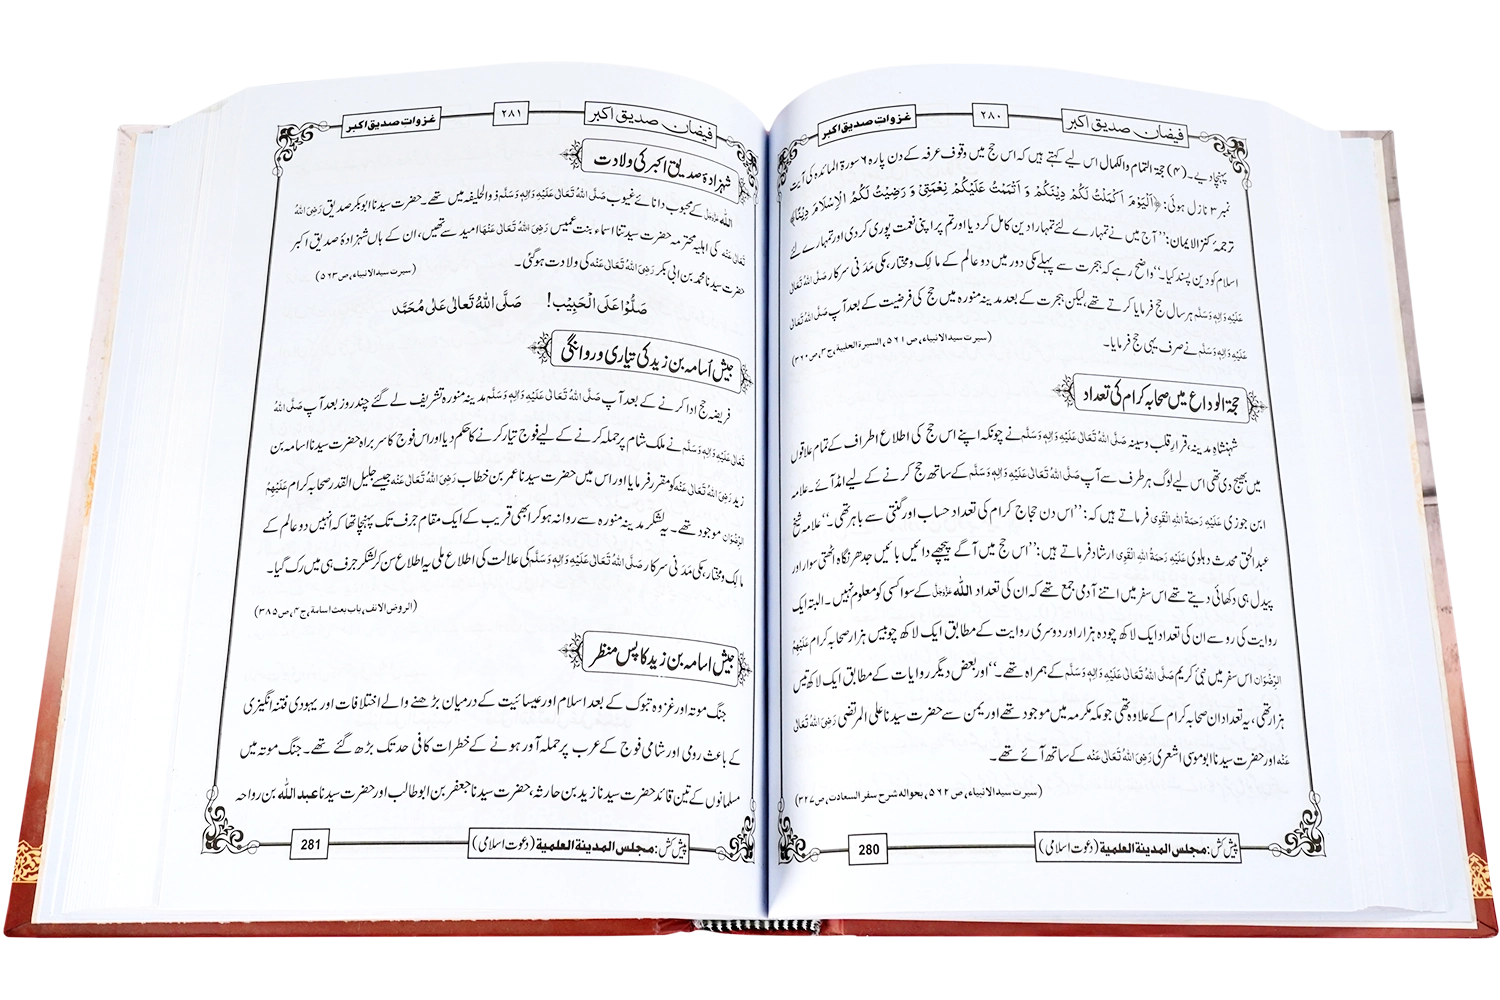 فیضانِ صدیق اکبر
۲۸۰
غزواتِ صدیق اکبر
پہنچا دیے۔ (۴) حجۃ التمام والکمال اس لیے کہتے ہیں کہ اس حج میں وقوف عرفہ کے دن پارہ ۶ سورۃ المائدہ کی آیت
نمبر ۳ نازل ہوئی: ﴿اَلْیَوْمَ اَکْمَلْتُ لَکُمْ دِیْنَکُمْ وَ اَتْمَمْتُ عَلَیْکُمْ نِعْمَتِیْ وَ رَضِیْتُ لَکُمُ الْاِسْلَامَ دِیْنًا﴾
ترجمۂ کنز الایمان: ’’آج میں نے تمہارے لئے تمہارا دین کامل کر دیا اور تم پر اپنی نعمت پوری کر دی اور تمہارے لئے
اسلام کو دین پسند کیا۔‘‘ واضح رہے کہ ہجرت سے پہلے مکی دور میں دو عالم کے مالک و مختار، مکی مَدَنی سرکار صَلَّی اللہُ تَعَالٰی
عَلَیْہِ وَاٰلِہٖ وَسَلَّم ہر سال حج فرمایا کرتے تھے، لیکن ہجرت کے بعد مدینہ منورہ میں حج کی فرضیت کے بعد آپ صَلَّی اللہُ تَعَالٰی
عَلَیْہِ وَاٰلِہٖ وَسَلَّم نے صرف یہی حج فرمایا۔
(سیرت سید الانبیاء، ص۵۶۱، السیرۃ الحلبیۃ، ج۳، ص۳۶۰)
حجۃ الوداع میں صحابہ کرام کی تعداد
شہنشاہِ مدینہ، قرارِ قلب و سینہ صَلَّی اللہُ تَعَالٰی عَلَیْہِ وَاٰلِہٖ وَسَلَّم نے چونکہ اپنے اس حج کی اطلاع اطراف کے تمام علاقوں
میں بھیج دی تھی اس لیے لوگ ہر طرف سے آپ صَلَّی اللہُ تَعَالٰی عَلَیْہِ وَاٰلِہٖ وَسَلَّم کے ساتھ حج کرنے کے لیے امڈ آئے۔ علامہ
ابن جوزی عَلَیْہِ رَحْمَۃُ اللہِ الْقَوِی فرماتے ہیں کہ: ’’اس دن حجاج کرام کی تعداد حساب اور گنتی سے باہر تھی۔‘‘ علامہ شیخ
عبد الحق محدث دہلوی عَلَیْہِ رَحْمَۃُ اللہِ الْقَوِی ارشاد فرماتے ہیں: ’’اس حج میں آگے پیچھے دائیں بائیں جدھر نگاہ اٹھتی سوار اور
پیدل ہی دکھائی دیتے تھے اس سفر میں اتنے آدمی جمع تھے کہ ان کی تعداد اللہ عَزَّوَجَلَّ کے سوا کسی کو معلوم نہیں۔ البتہ ایک
روایت کی رو سے ان کی تعداد ایک لاکھ چودہ ہزار اور دوسری روایت کے مطابق ایک لاکھ چوبیس ہزار صحابہ کرام عَلَیْہِمُ
الرِّضْوَان اس سفر میں نبیٔ کریم صَلَّی اللہُ تَعَالٰی عَلَیْہِ وَاٰلِہٖ وَسَلَّم کے ہمراہ تھے۔‘‘ اور بعض دیگر روایات کے مطابق ایک لاکھ تیس
ہزار تھی، یہ تعداد ان صحابہ کرام کے علاوہ تھی جو مکہ مکرمہ میں موجود تھے اور یمن سے حضرت سیدنا علی المرتضی رَضِیَ اللہُ تَعَالٰی
عَنْہ اور حضرت سیدنا ابو موسیٰ اشعری رَضِیَ اللہُ تَعَالٰی عَنْہ کے ساتھ آئے تھے۔
(سیرت سید الانبیاء، ص۵۶۲، بحوالہ شرح سفر السعادت، ص۳۲۷)
پیش کش: مجلس المدینۃ العلمیۃ (دعوت اسلامی)
280
فیضانِ صدیق اکبر
۲۸۱
غزواتِ صدیق اکبر
شہزادۂ صدیق اکبر کی ولادت
اللہ عَزَّوَجَلَّ کے محبوب دانائے غیوب صَلَّی اللہُ تَعَالٰی عَلَیْہِ وَاٰلِہٖ وَسَلَّم ذو الحلیفہ میں تھے۔ حضرت سیدنا ابوبکر صدیق رَضِیَ اللہُ
تَعَالٰی عَنْہ کی اہلیہ محترمہ حضرت سیدتنا اسماء بنت عمیس رَضِیَ اللہُ تَعَالٰی عَنْہَا امید سے تھیں، ان کے ہاں شہزادۂ صدیق اکبر
حضرت سیدنا محمد بن ابی بکر رَضِیَ اللہُ تَعَالٰی عَنْہ کی ولادت ہوگئی۔ (سیرت سید الانبیاء، ص۵۶۳)
صَلُّوْا عَلَی الْحَبِیْب! صَلَّی اللہُ تَعَالٰی عَلٰی مُحَمَّد
جیش اُسامہ بن زید کی تیاری و روانگی
فریضۂ حج ادا کرنے کے بعد آپ صَلَّی اللہُ تَعَالٰی عَلَیْہِ وَاٰلِہٖ وَسَلَّم مدینہ منورہ تشریف لے گئے چند روز بعد آپ صَلَّی اللہُ
تَعَالٰی عَلَیْہِ وَاٰلِہٖ وَسَلَّم نے ملک شام پر حملہ کرنے کے لیے فوج تیار کرنے کا حکم دیا اور اس فوج کا سربراہ حضرت سیدنا اسامہ بن
زید رَضِیَ اللہُ تَعَالٰی عَنْہ کو مقرر فرمایا اور اس میں حضرت سیدنا عمر بن خطاب رَضِیَ اللہُ تَعَالٰی عَنْہ جیسے جلیل القدر صحابہ کرام عَلَیْہِمُ
الرِّضْوَان موجود تھے۔ یہ لشکر مدینہ منورہ سے روانہ ہو کر ابھی قریب کے ایک مقام جرف تک پہنچا تھا کہ انہیں دو عالم کے
مالک و مختار، مکی مَدَنی سرکار صَلَّی اللہُ تَعَالٰی عَلَیْہِ وَاٰلِہٖ وَسَلَّم کی علالت کی اطلاع ملی یہ اطلاع سن کر لشکر جرف ہی میں رک گیا۔
(الروض الانف، باب بعث اسامۃ، ج۴، ص۳۸۵)
جیش اسامہ بن زید کا پس منظر
جنگ موتہ اور غزوہ تبوک کے بعد اسلام اور عیسائیت کے درمیان بڑھنے والے اختلافات اور یہودی فتنہ انگیزی
کے باعث رومی اور شامی فوج کے عرب پر حملہ آور ہونے کے خطرات کافی حد تک بڑھ گئے تھے۔ جنگ موتہ میں
مسلمانوں کے تین قائد حضرت سیدنا زید بن حارثہ، حضرت سیدنا جعفر بن ابو طالب اور حضرت سیدنا عبد اللہ بن رواحہ
پیش کش: مجلس المدینۃ العلمیۃ (دعوت اسلامی)
281